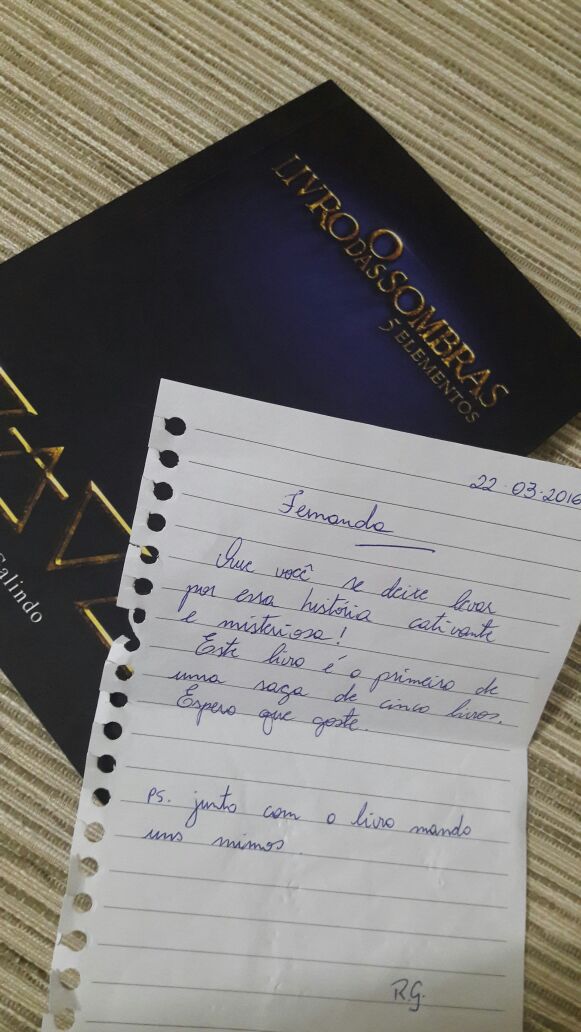 O
LIVRO DAS SOMBRAS
5 ELEMENTOS
Galindo
22.03.2016
Fernanda
Que você se deixe levar
por essa história cativante
e misteriosa!
Este livro é o primeiro de
uma saga de cinco livros.
Espero que goste.
PS. junto com o livro mando
uns mimos.
R.G.